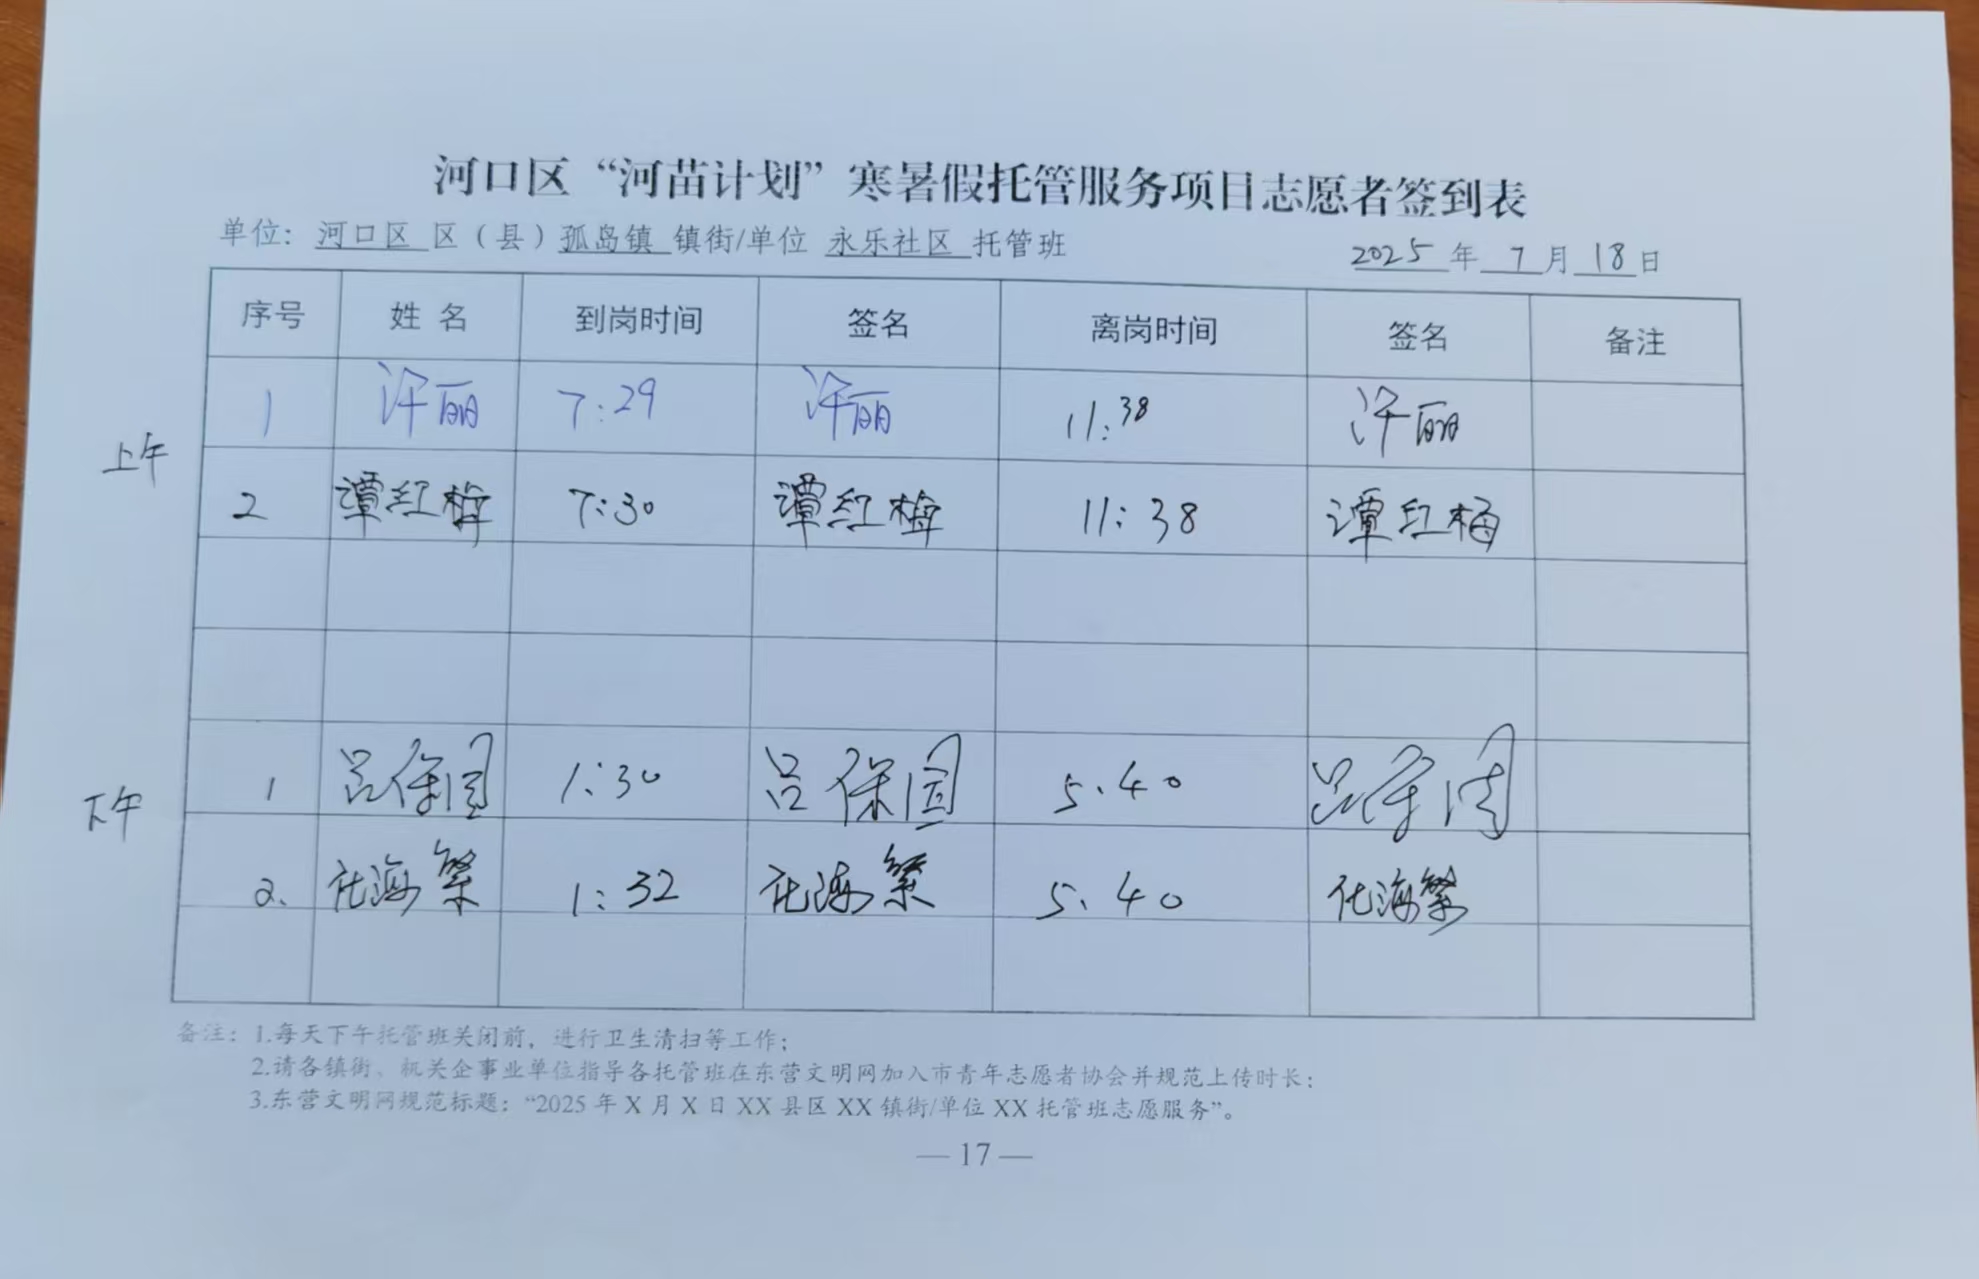 河口区“河苗计划”寒暑假托管服务项目志愿者签到表
单位: 河口区 区（县）孤岛镇 镇街/单位 永乐社区 托管班 2025 年 7 月 18 日
序号 姓 名 到岗时间 签名 离岗时间 签名 备注
上午
1 许丽 7:29 许丽 11:38 许丽
2 谭红梅 7:30 谭红梅 11:38 谭红梅
下午
1 吕保国 1:30 吕保国 5.40 吕保国
2. 海繁 1:32 海繁 5.40 海繁
备注: 1.每天下午托管班关闭前，进行卫生清扫等工作;
2.请各镇街、机关企事业单位指导各托管班在东营文明网加入市青年志愿者协会并规范上传时长;
3.东营文明网规范标题: “2025 年 X 月 X 日 XX 县区 XX 镇街/单位 XX 托管班志愿服务”。
— 17 —